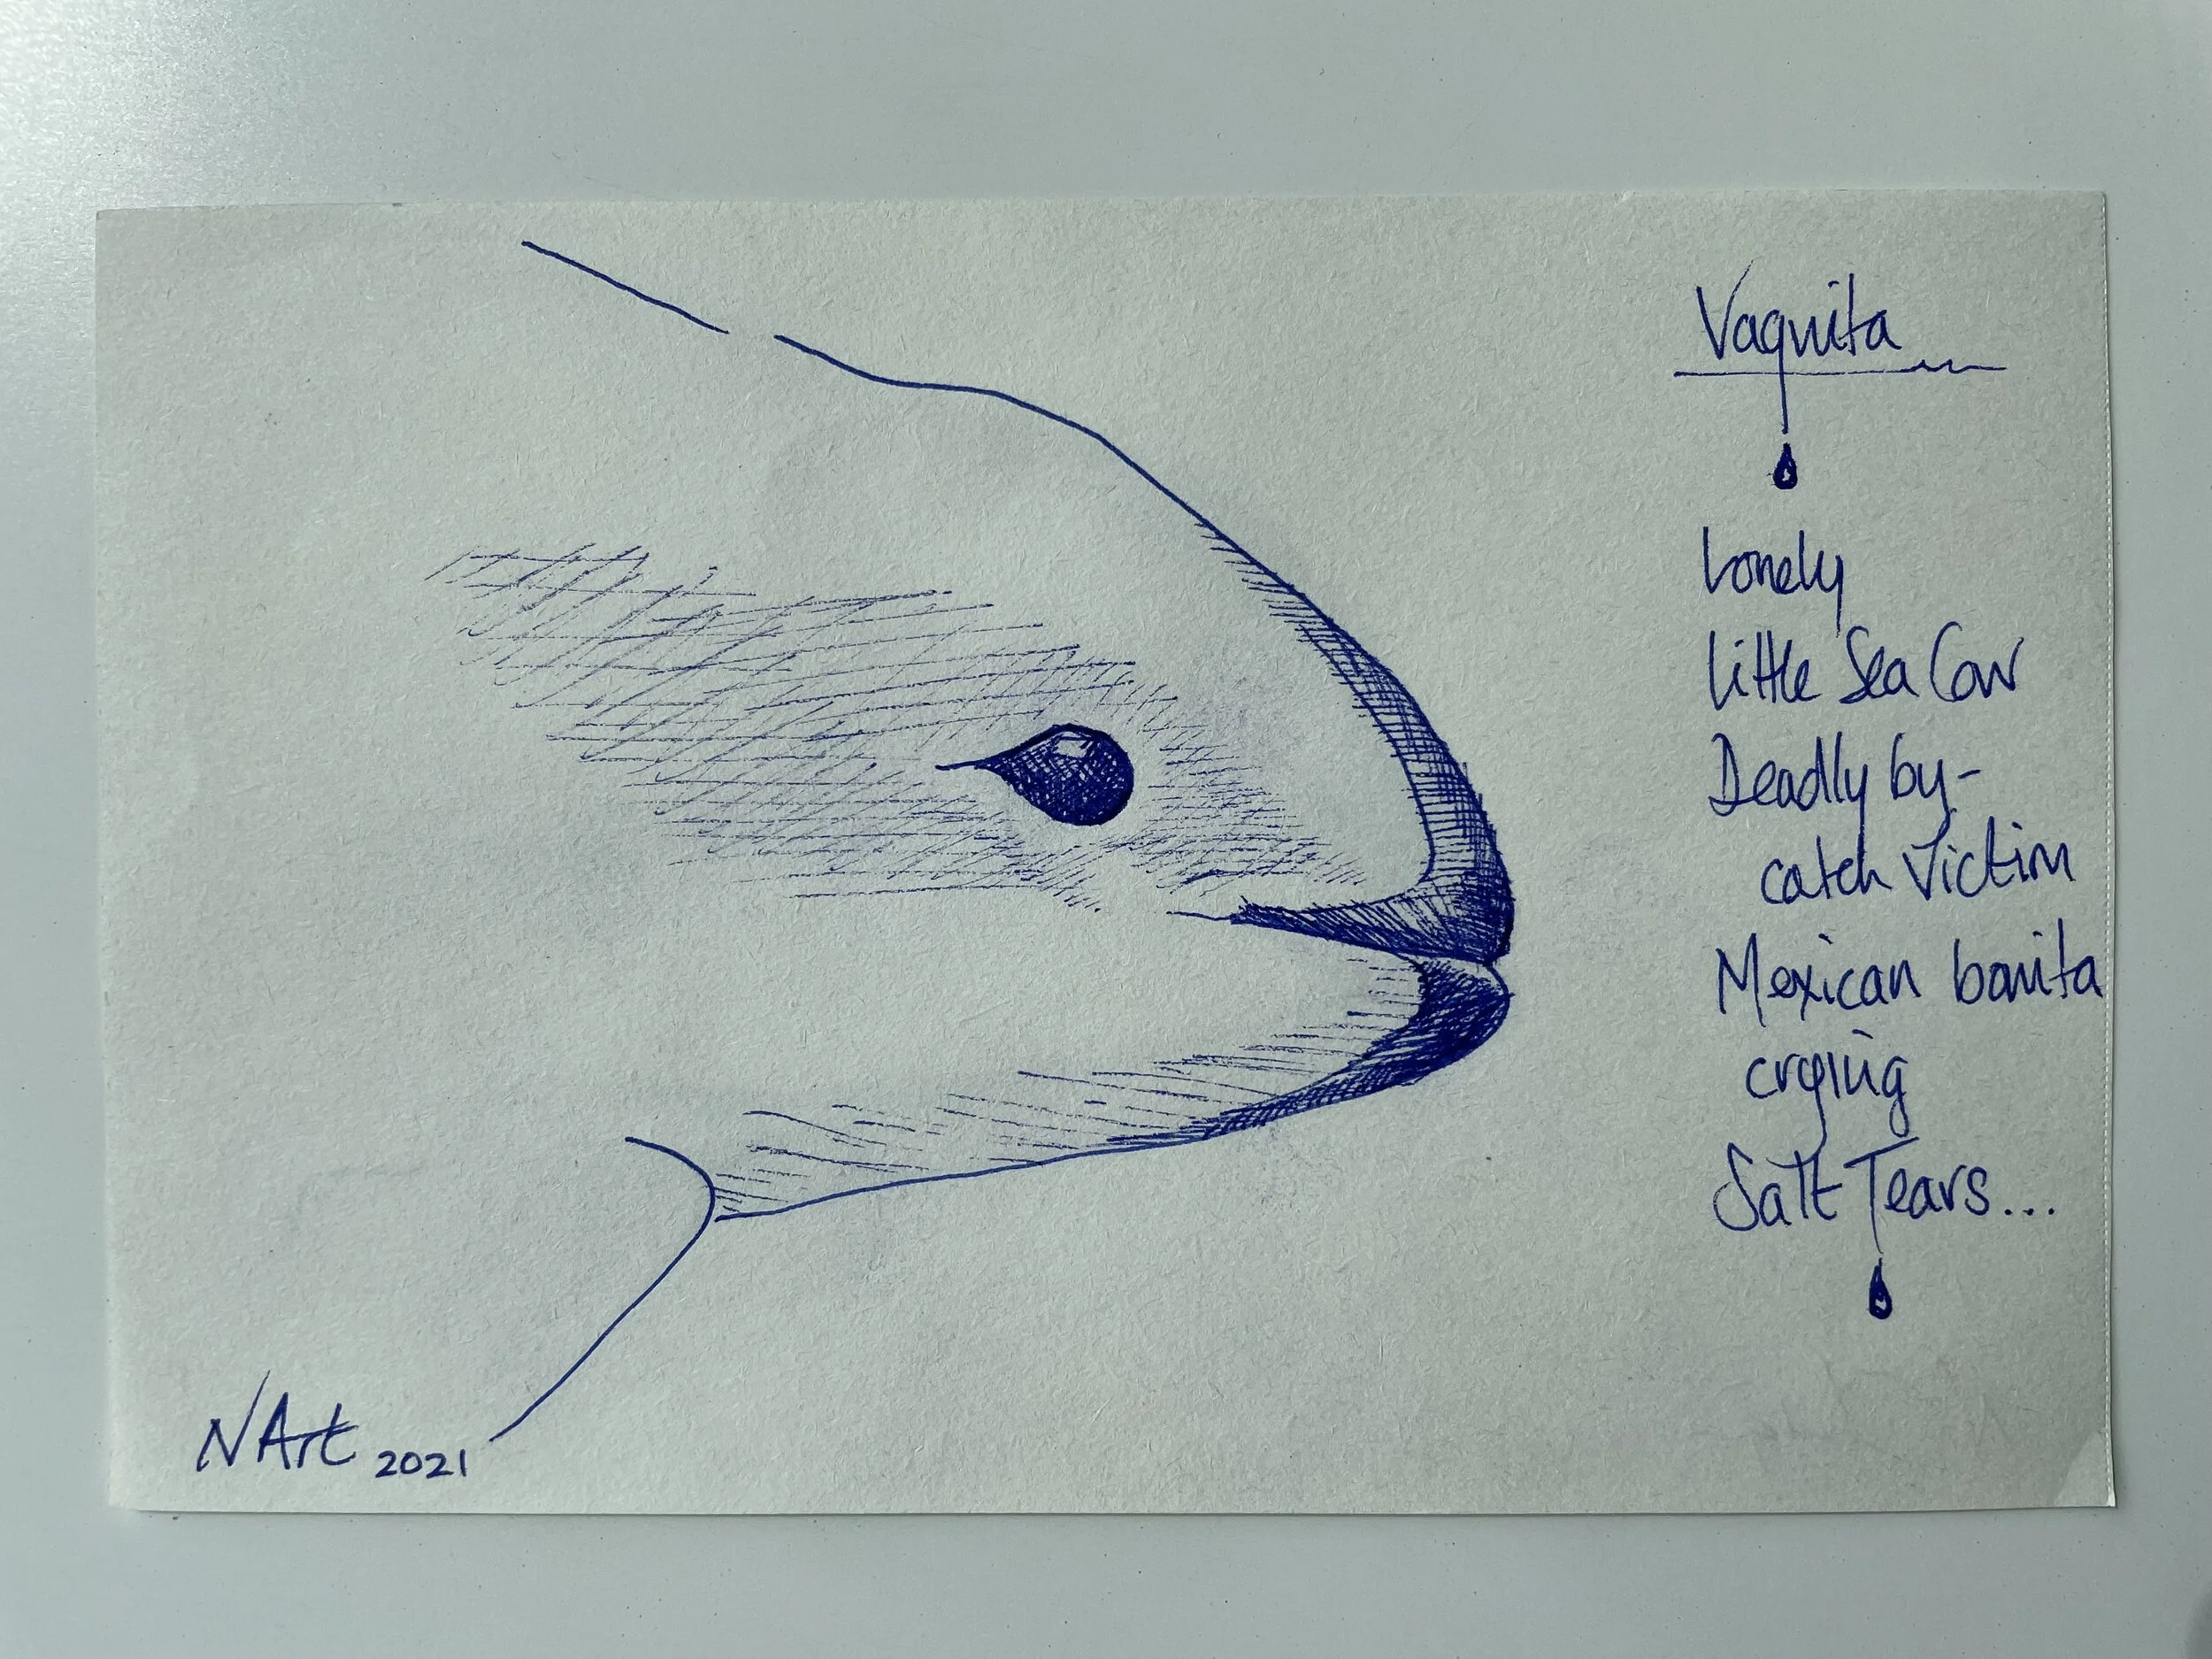 Vaquita
Lonely
Little Sea Cow
Deadly by-
catch Victim
Mexican bonita
crying
Salt Tears...
NArt 2021